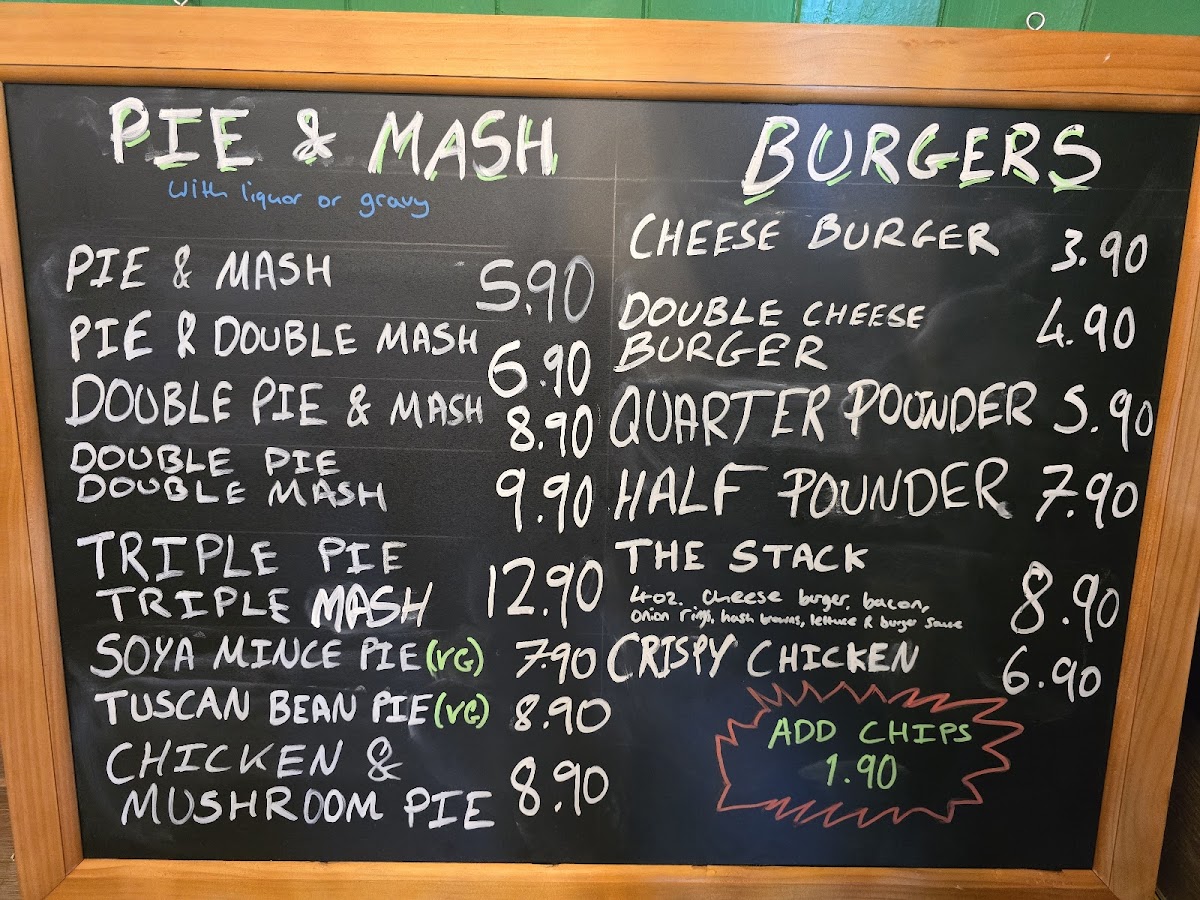 PIE & MASH
With liquor or gravy
PIE & MASH 5.90
PIE & DOUBLE MASH 6.90
DOUBLE PIE & MASH 8.90
DOUBLE PIE
DOUBLE MASH 9.90
TRIPLE PIE
TRIPLE MASH 12.90
SOYA MINCE PIE (VG) 7.90
TUSCAN BEAN PIE (VG) 8.90
CHICKEN &
MUSHROOM PIE 8.90
BURGERS
CHEESE BURGER 3.90
DOUBLE CHEESE
BURGER 4.90
QUARTER POUNDER 5.90
HALF POUNDER 7.90
THE STACK
4oz. cheese burger, bacon,
onion rings, hash browns, lettuce & burger sauce 8.90
CRISPY CHICKEN 6.90
ADD CHIPS
1.90